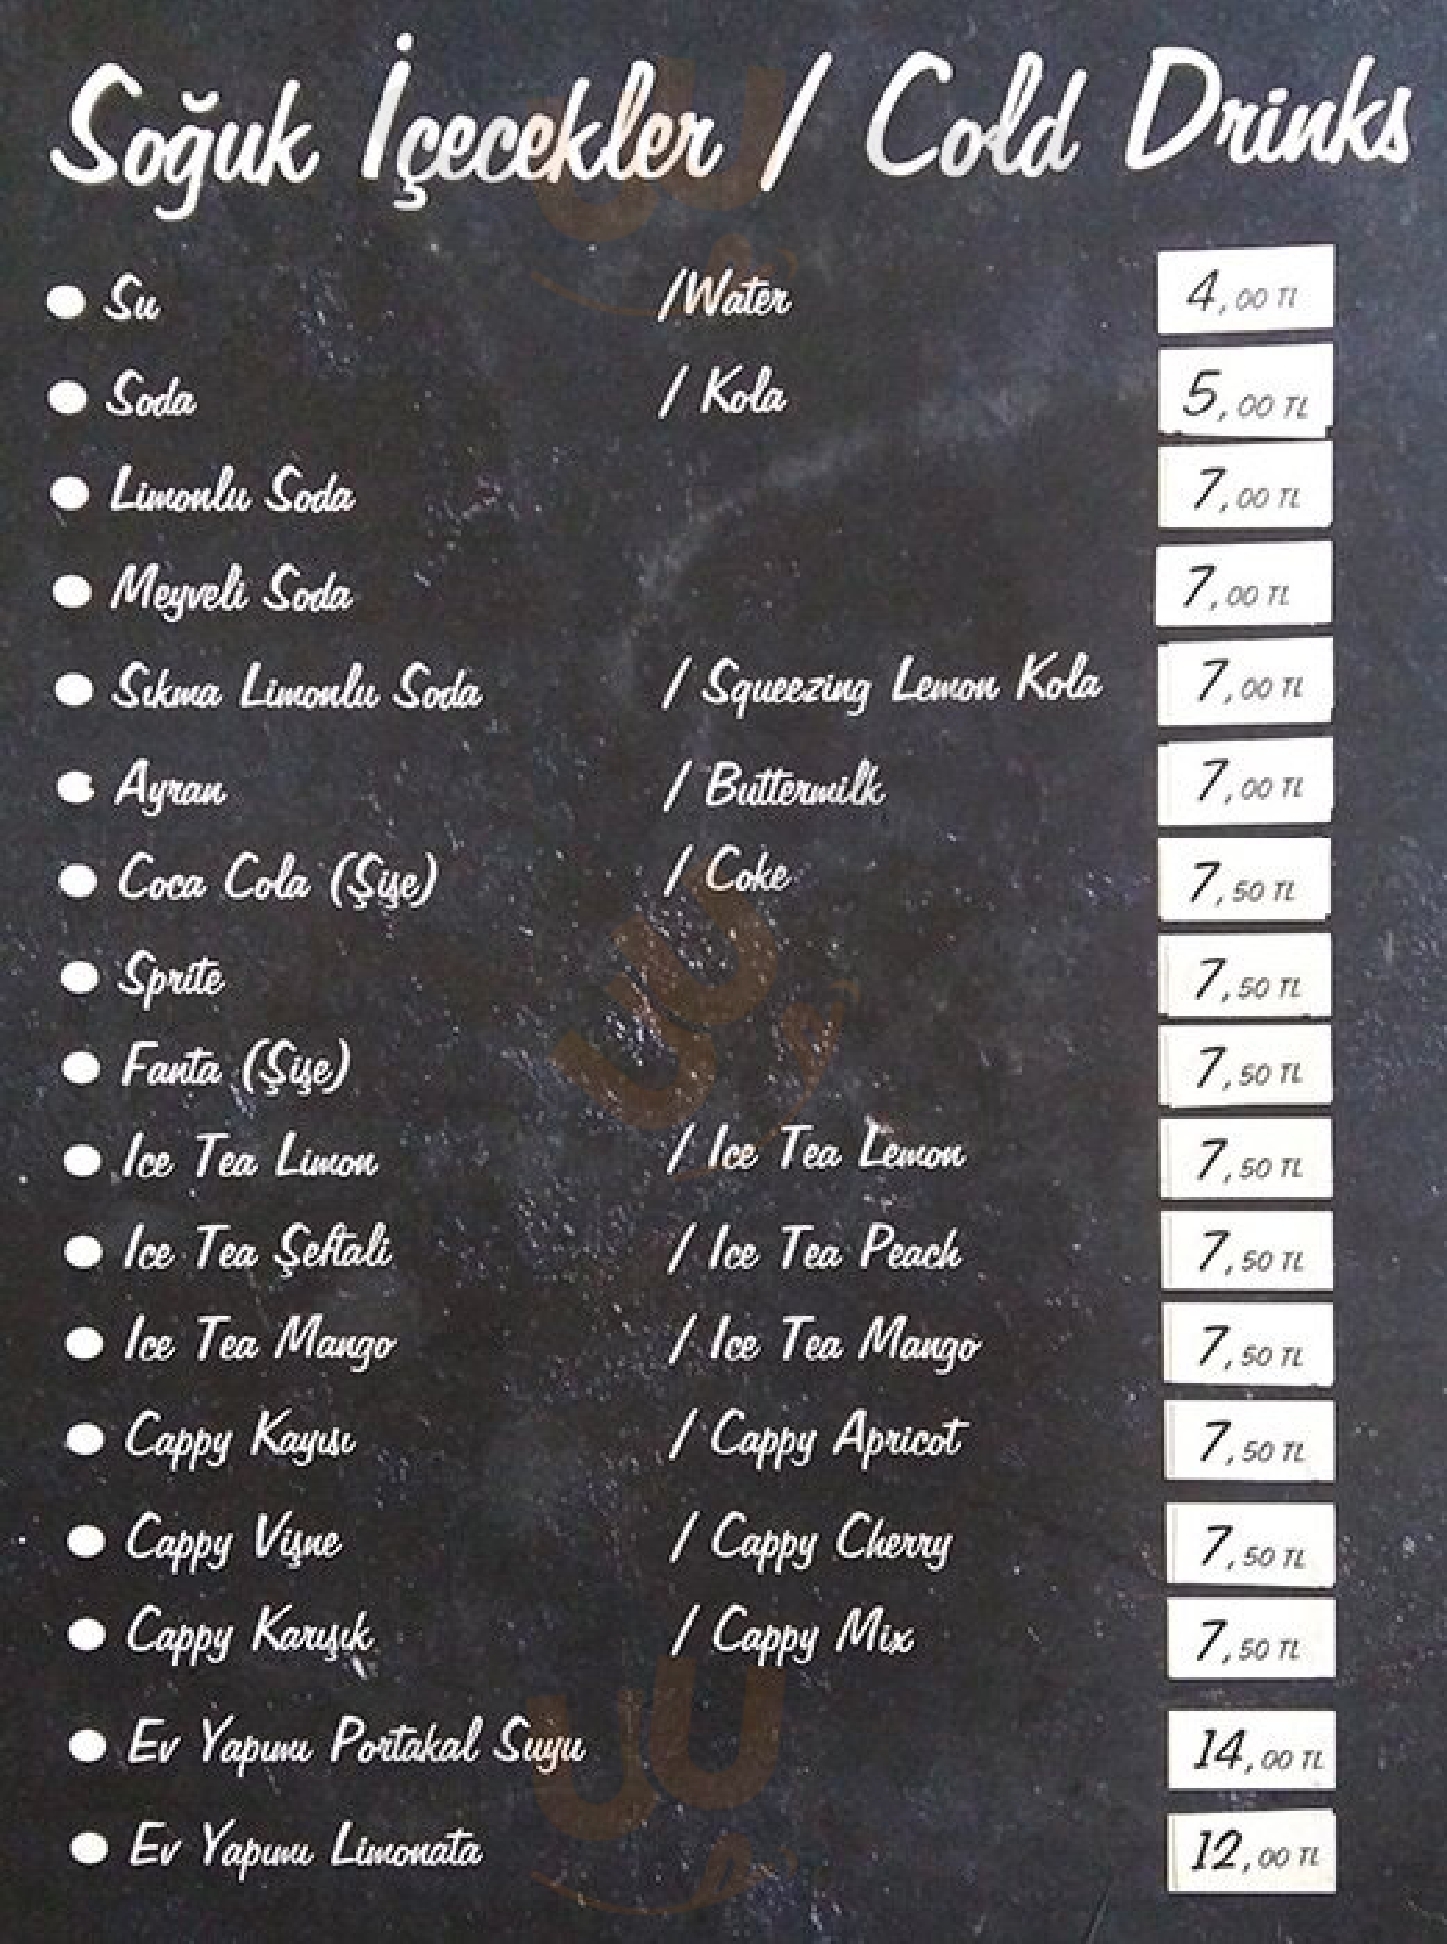 Soğuk İçecekler / Cold Drinks
Su /Water 4,00 TL
Soda / Kola 5,00 TL
Limonlu Soda 7,00 TL
Meyveli Soda 7,00 TL
Sıkma Limonlu Soda / Squeezing Lemon Kola 7,00 TL
Ayran / Buttermilk 7,00 TL
Coca Cola (Şişe) / Coke 7,50 TL
Sprite 7,50 TL
Fanta (Şişe) 7,50 TL
Ice Tea Limon / Ice Tea Lemon 7,50 TL
Ice Tea Şeftali / Ice Tea Peach 7,50 TL
Ice Tea Mango / Ice Tea Mango 7,50 TL
Cappy Kayısı / Cappy Apricot 7,50 TL
Cappy Vişne / Cappy Cherry 7,50 TL
Cappy Karışık / Cappy Mix 7,50 TL
Ev Yapımı Portakal Suyu 14,00 TL
Ev Yapımı Limonata 12,00 TL